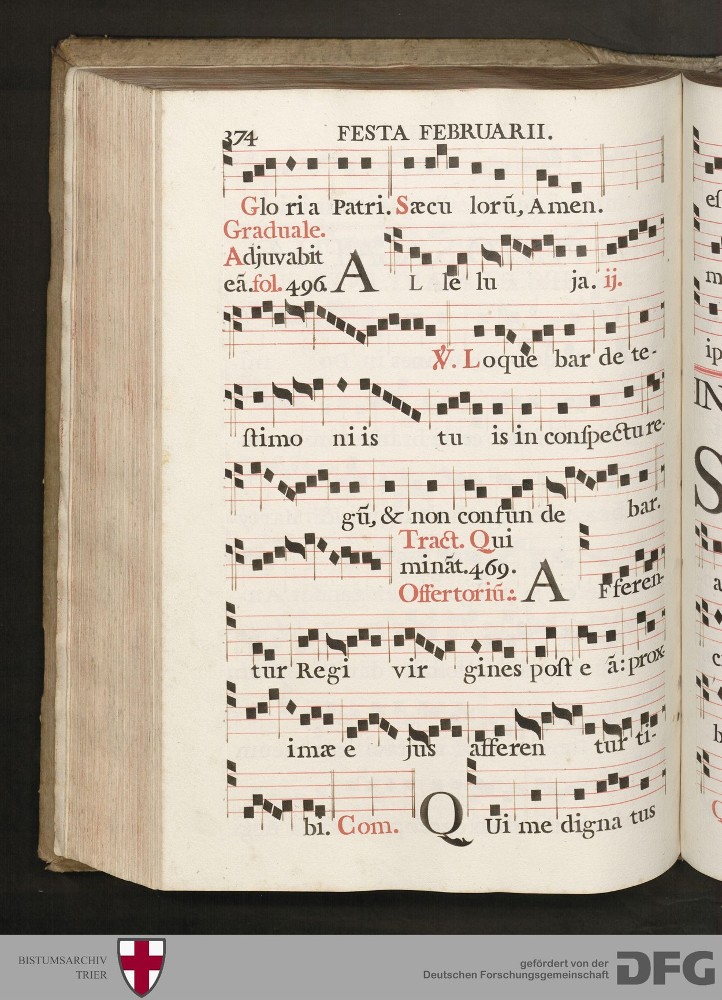 374 FESTA FEBRUARII.
Glo ri a Patri. Sæcu lorũ, Amen.
Graduale.
Adjuvabit
eã. fol. 496. A L le lu ja. ij.
℣. Loque bar de te-
ſtimo ni is tu is in conſpectu re-
gũ, & non confun de bar.
Tract. Qui
minãt. 469.
Offertoriũ: A Fferen-
tur Regi vir gines poſt e ã: prox-
imæ e jus afferen tur ti-
bi. Com. Q Ui me digna tus
eſ
m
ip
IN
S
a
c
b
BISTUMSARCHIV
TRIER
gefördert von der
Deutschen Forschungsgemeinschaft
DFG